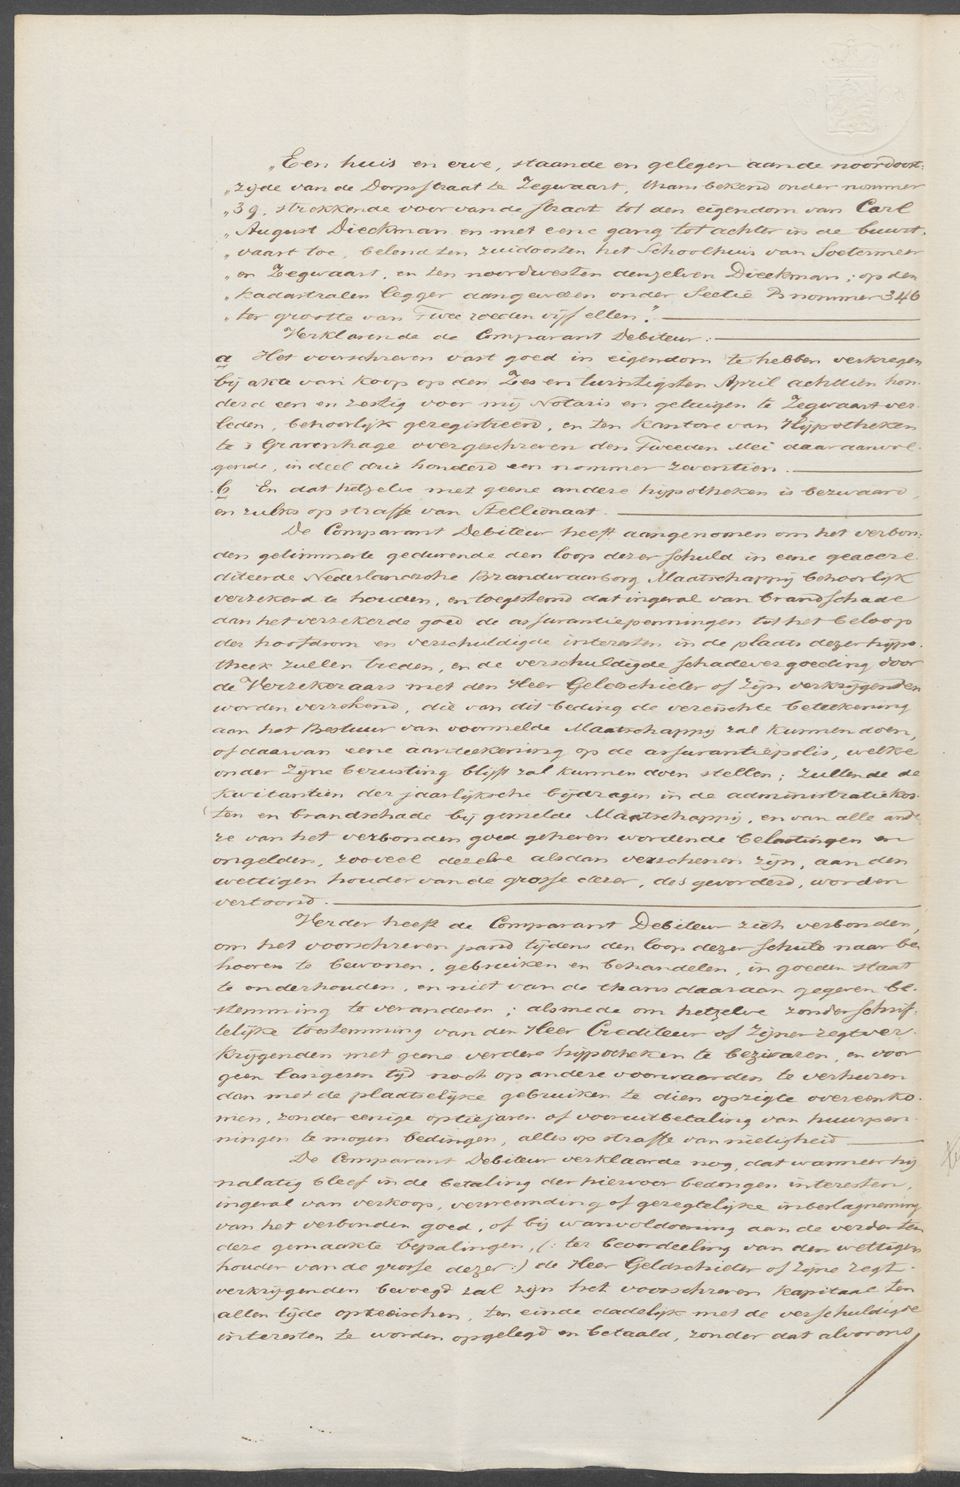 „Een huis en erve, staande en gelegen aan de noordoost-
„zijde van de Dorpsstraat te Zegwaart, thans bekend onder nommer
„39. strekkende voor van de straat tot den eigendom van Carl
„August Dieckman en met eene gang tot achter in de buurt.
„vaart toe, belend ten zuidoosten het Schoolhuis van Soetermeer
„en Zegwaart, en ten noordwesten denzelven Dieckman; op den
„kadastralen legger aangewezen onder Sectie B nommer 346
„ter grootte van Twee roeden vijf ellen.”
Verklarende de Comparant Debiteur:
a Het voorschreven vast goed in eigendom te hebben verkregen
bij akte van koop op den Zes en twintigsten April achttien hon-
derd een en zestig voor mij Notaris en getuigen te Zegwaart ver-
leden, behoorlijk geregistreerd, en ten kantore van Hijpotheken
te 's Gravenhage overgeschreven den Tweeden Mei daaraanvol-
gende, in deel drie honderd een nommer zeventien.
b En dat hetzelve met geene andere hijpotheken is bezwaard,
en zulks op straffe van Stellionaat.
De Comparant Debiteur heeft aangenomen om het verbon-
den getimmerte gedurende den loop dezer schuld in eene geaccre-
diteerde Nederlandsche Brandwaarborg Maatschappij behoorlijk
verzekerd te houden, en toegestemd dat ingeval van brandschade
aan het verzekerde goed de assurantiepenningen tot het beloop
der hoofdsom en verschuldigde interesten in de plaats dezer hijpo-
theek zullen treden, en de verschuldigde schadevergoeding door
de Verzekeraars met den Heer Geldschieter of zijn verkrijgenden
worden verrekend, die van dit beding de vereischte beteekening
aan het Bestuur van voormelde Maatschappij zal kunnen doen,
of daarvan eene aanteekening op de assurantiepolis, welke
onder zijne berusting blijft zal kunnen doen stellen; zullende de
kwitantiën der jaarlijksche bijdragen in de administratiekos-
ten en brandschade bij gemelde Maatschappij, en van alle ande-
re van het verbonden goed geheven wordende belastingen en
ongelden, zooveel dezelve alsdan verschenen zijn, aan den
wettigen houder van de grosse dezer, des gevorderd, worden
vertoond.
Verder heeft de Comparant Debiteur zich verbonden,
om het voorschreven pand tijdens den loop dezer schuld naar be-
hooren te bewonen, gebruiken en behandelen, in goeden staat
te onderhouden, en niet van de thans daaraan gegeven be-
stemming te veranderen; alsmede om hetzelve zonder schrif-
telijke toestemming van den Heer Crediteur of zijner regtver-
krijgenden met geene verdere hijpotheken te bezwaren, en voor
geen langeren tijd noch op andere voorwaarden te verhuren
dan met de plaatselijke gebruiken te dien opzigte overeenko-
men, zonder eenige optiejaren of vooruitbetaling van huurpen-
ningen te mogen bedingen, alles op straffe van nietigheid
De Comparant Debiteur verklaarde nog, dat wanneer hij
nalatig bleef in de betaling der hiervoor bedongen interesten,
ingeval van verkoop, vervreemding of geregtelijke inbeslagneming
van het verbonden goed, of bij wanvoldoening aan de verder ten
deze gemaakte bepalingen, (: ter beoordeeling van den wettigen
houder van de grosse dezer:) de Heer Geldschieter of zijne regt-
verkrijgenden bevoegd zal zijn het voorschreven kapitaal ten
allen tijde opteeischen, ten einde dadelijk met de verschuldigde
interesten te worden opgelegd en betaald, zonder dat alvorens